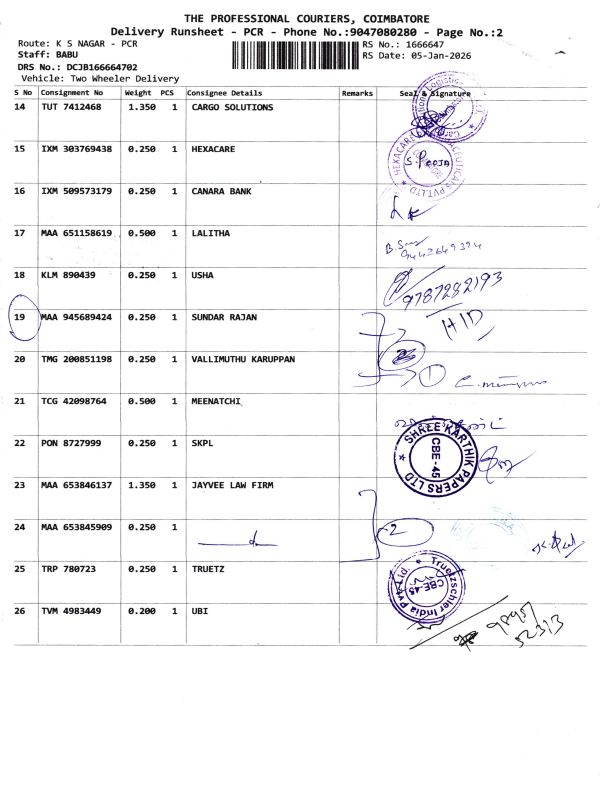 THE PROFESSIONAL COURIERS, COIMBATORE
Delivery Runsheet - PCR - Phone No.:9047080280 - Page No.:2
Route: K S NAGAR - PCR RS No.: 1666647
Staff: BABU RS Date: 05-Jan-2026
DRS No.: DCJB166664702
Vehicle: Two Wheeler Delivery
S No Consignment No Weight PCS Consignee Details Remarks Seal & Signature
14 TUT 7412468 1.350 1 CARGO SOLUTIONS
15 IXM 303769438 0.250 1 HEXACARE
S. Pooja
16 IXM 509573179 0.250 1 CANARA BANK
17 MAA 651158619 0.500 1 LALITHA
18 KLM 890439 0.250 1 USHA
9787282193
19 MAA 945689424 0.250 1 SUNDAR RAJAN
HID
20 TMG 200851198 0.250 1 VALLIMUTHU KARUPPAN
1
21 TCG 42098764 0.500 1 MEENATCHI
22 PON 8727999 0.250 1 SKPL
SHREE KARTHIK PAPERS LTD
CBE-45
23 MAA 653846137 1.350 1 JAYVEE LAW FIRM
24 MAA 653845909 0.250 1
2
25 TRP 780723 0.250 1 TRUETZ
Truetzschler India Pvt. Ltd.
CBE-45
26 TVM 4983449 0.200 1 UBI
52313